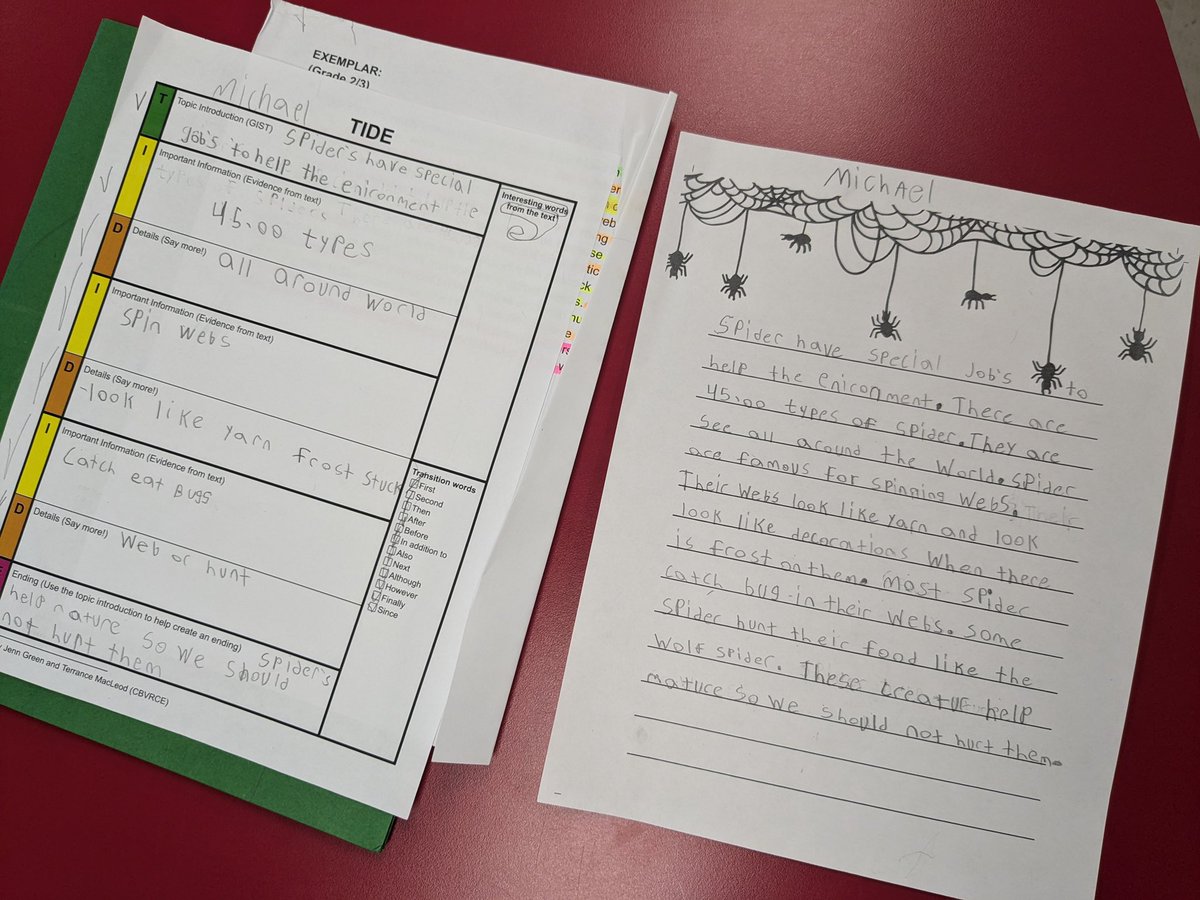 EXEMPLAR:
(Grade 2/3)
Michael
TIDE
T
Topic Introduction (GIST) SPider's have special
job's to help the enironment
I
Important Information (Evidence from text)
45.00 types
D
Details (Say more!) all around world
I
Important Information (Evidence from text)
SPin webs
D
Details (Say more!)
-look like yarn frost stuck
I
Important Information (Evidence from text)
Catch eat Bugs
D
Details (Say more!) web or hunt
Ending (Use the topic introduction to help create an ending) SPider's
help nature so we should
not hurt them
Jenn Green and Terrance MacLeod (CBVRCE)
Interesting words
from the text
Transition words
First
Second
Then
After
Before
In addition to
Also
Next
Although
However
Finally
Since
MichAel
SPider have special Job's to
help the enironment. There are
45.00 types of spider. They are
see all around the World. SPider
are famous for spinning webs.
Their webs look like yarn and look
look like decorations when there
is frost on them. most spider
catch bug in their webs. some
spider hunt their food like the
wolf spider. These creatur help
nature so we should not hurt them.